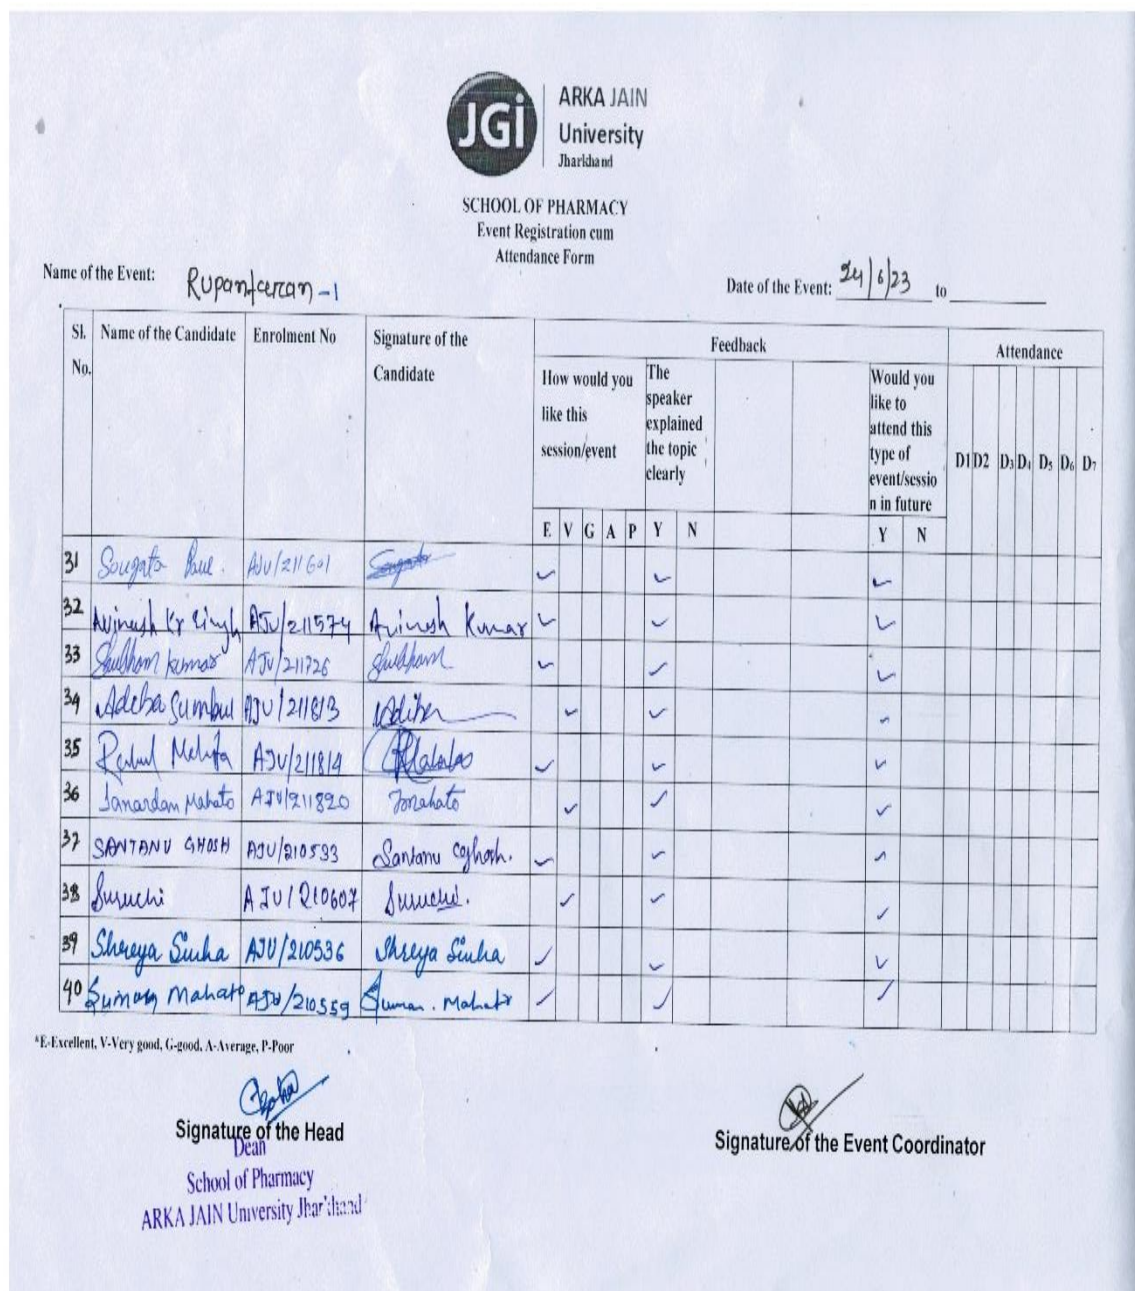 JGi
ARKA JAIN
University
Jharkhand
SCHOOL OF PHARMACY
Event Registration cum
Attendance Form
Name of the Event: Rupantaran-1
Date of the Event: 24/6/23 to
Sl. No. Name of the Candidate Enrolment No Signature of the Candidate Feedback Attendance
How would you like this session/event
The speaker explained the topic clearly
Would you like to attend this type of event/session in future
D1 D2 D3 D4 D5 D6 D7
E V G A P Y N Y N
31 Sougata Paul. AJU/211601
32 Avinash Kr Singh AJU/211574 Avinash Kumar
33 Shubham Kumar AJU/211726 Shubham
34 Adeba Sumbul AJU/211813
35 Rahul Mehta AJU/211814
36 Janardan Mahato AJU/211820 Jmahato
37 SANTANU GHOSH AJU/210533 Santanu Ghosh.
38 Suruchi AJU/210607 Suruchi.
39 Shreya Sinha AJU/210536 Shreya Sinha
40 Suman Mahato AJU/210559 Suman. Mahato
*E-Excellent, V-Very good, G-good, A-Average, P-Poor
Signature of the Head
Signature of the Event Coordinator
Dean
School of Pharmacy
ARKA JAIN University Jharkhand